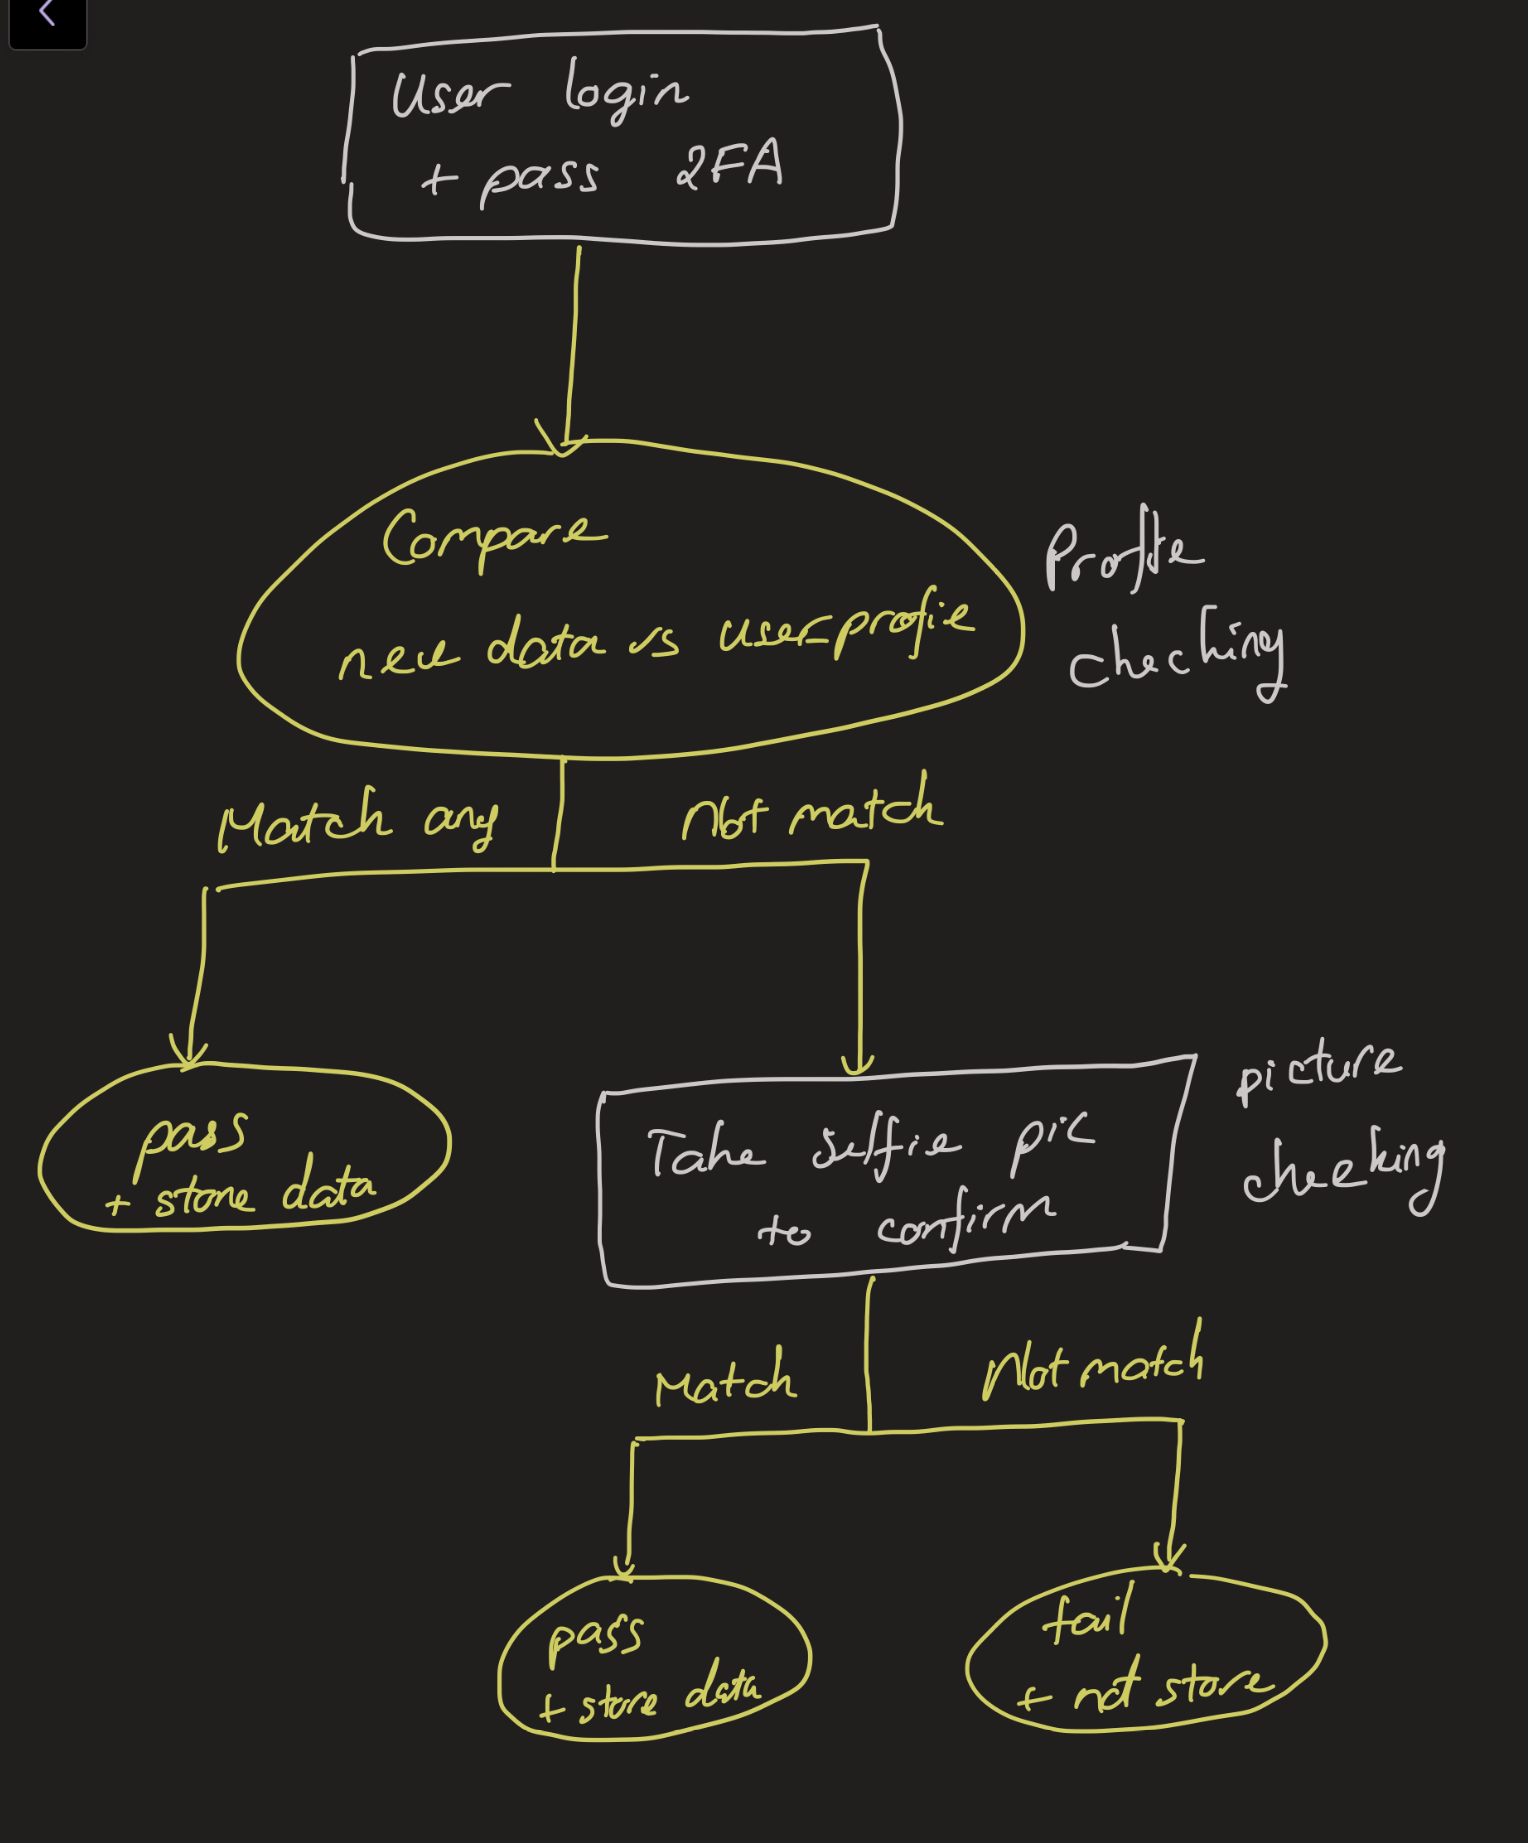 User login
+ pass 2FA
Compare
new data vs user_profie
Profile
checking
Match any
Not match
pass
+ store data
Take selfie pic
to confirm
picture
checking
Match
Not match
pass
+ store data
fail
+ not store